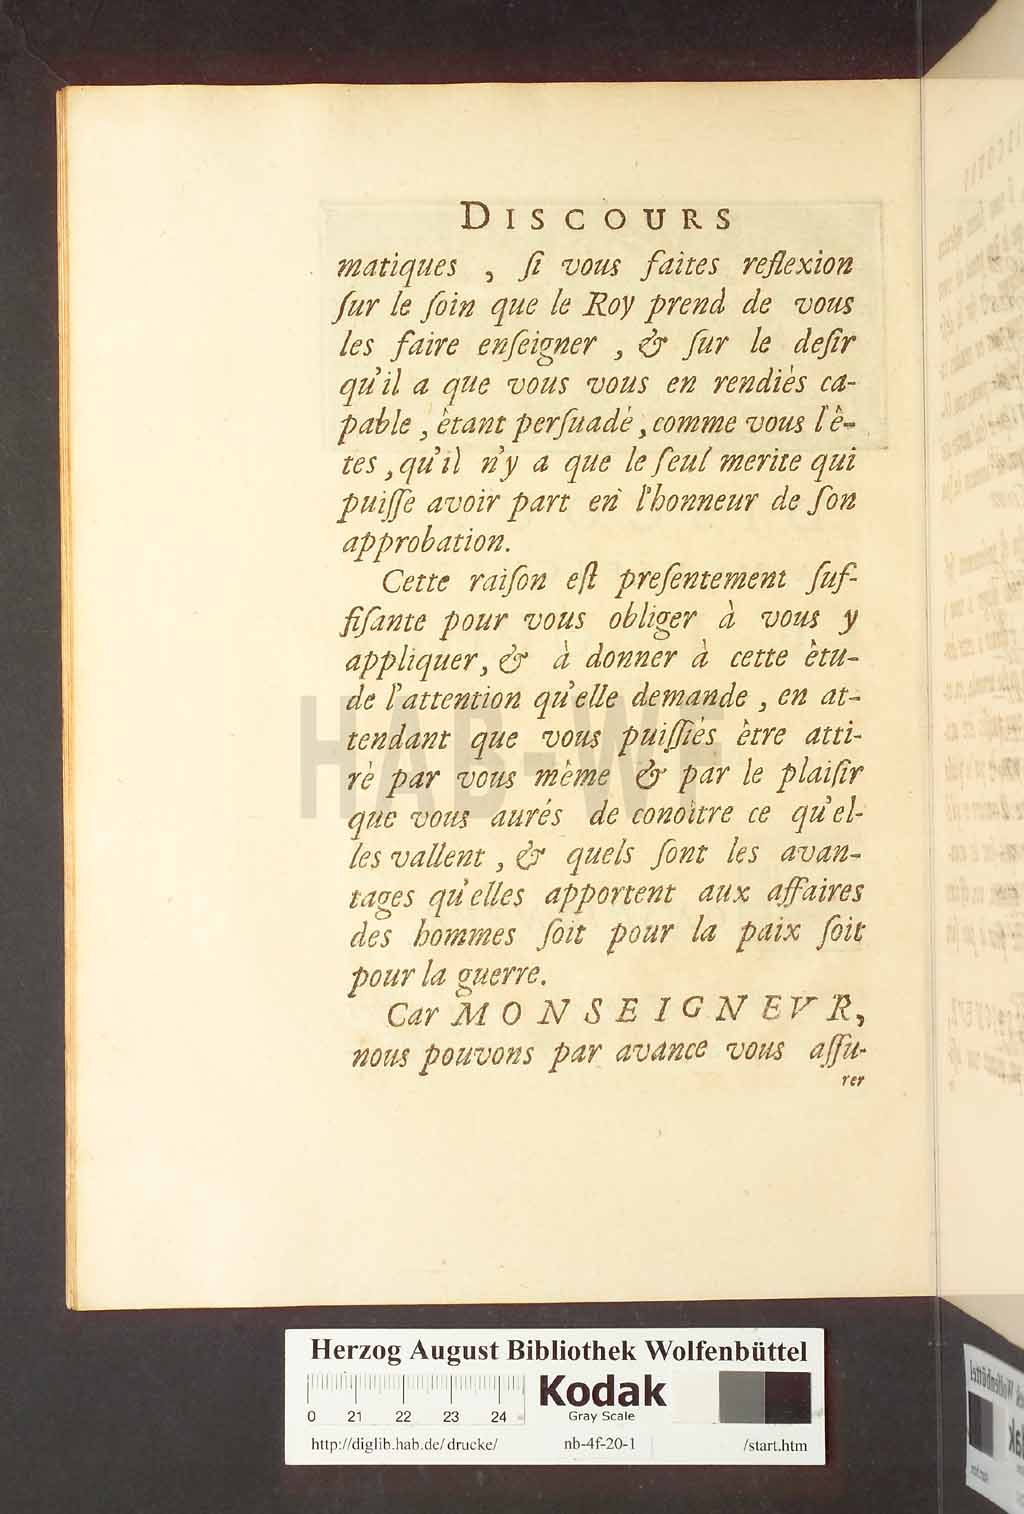 DISCOURS
matiques , ſi vous faites reflexion
ſur le ſoin que le Roy prend de vous
les faire enſeigner , & ſur le deſir
qu'il a que vous vous en rendiès ca-
pable , ètant perſuadè , comme vous l'ê-
tes , qu'il n'y a que le ſeul merite qui
puiſſe avoir part en l'honneur de ſon
approbation.
Cette raiſon eſt preſentement ſuf-
fiſante pour vous obliger à vous y
appliquer, & à donner à cette ètu-
de l'attention qu'elle demande , en at-
tendant que vous puiſſiès être atti-
rè par vous même & par le plaiſir
que vous aurés de conoître ce qu'el-
les vallent , & quels ſont les avan-
tages qu'elles apportent aux affaires
des hommes ſoit pour la paix ſoit
pour la guerre.
Car MONSEIGNEVR,
nous pouvons par avance vous aſſu-
rer
HAB-WF
Herzog August Bibliothek Wolfenbüttel
0 21 22 23 24
Kodak
Gray Scale
http://diglib.hab.de/drucke/ nb-4f-20-1 /start.htm